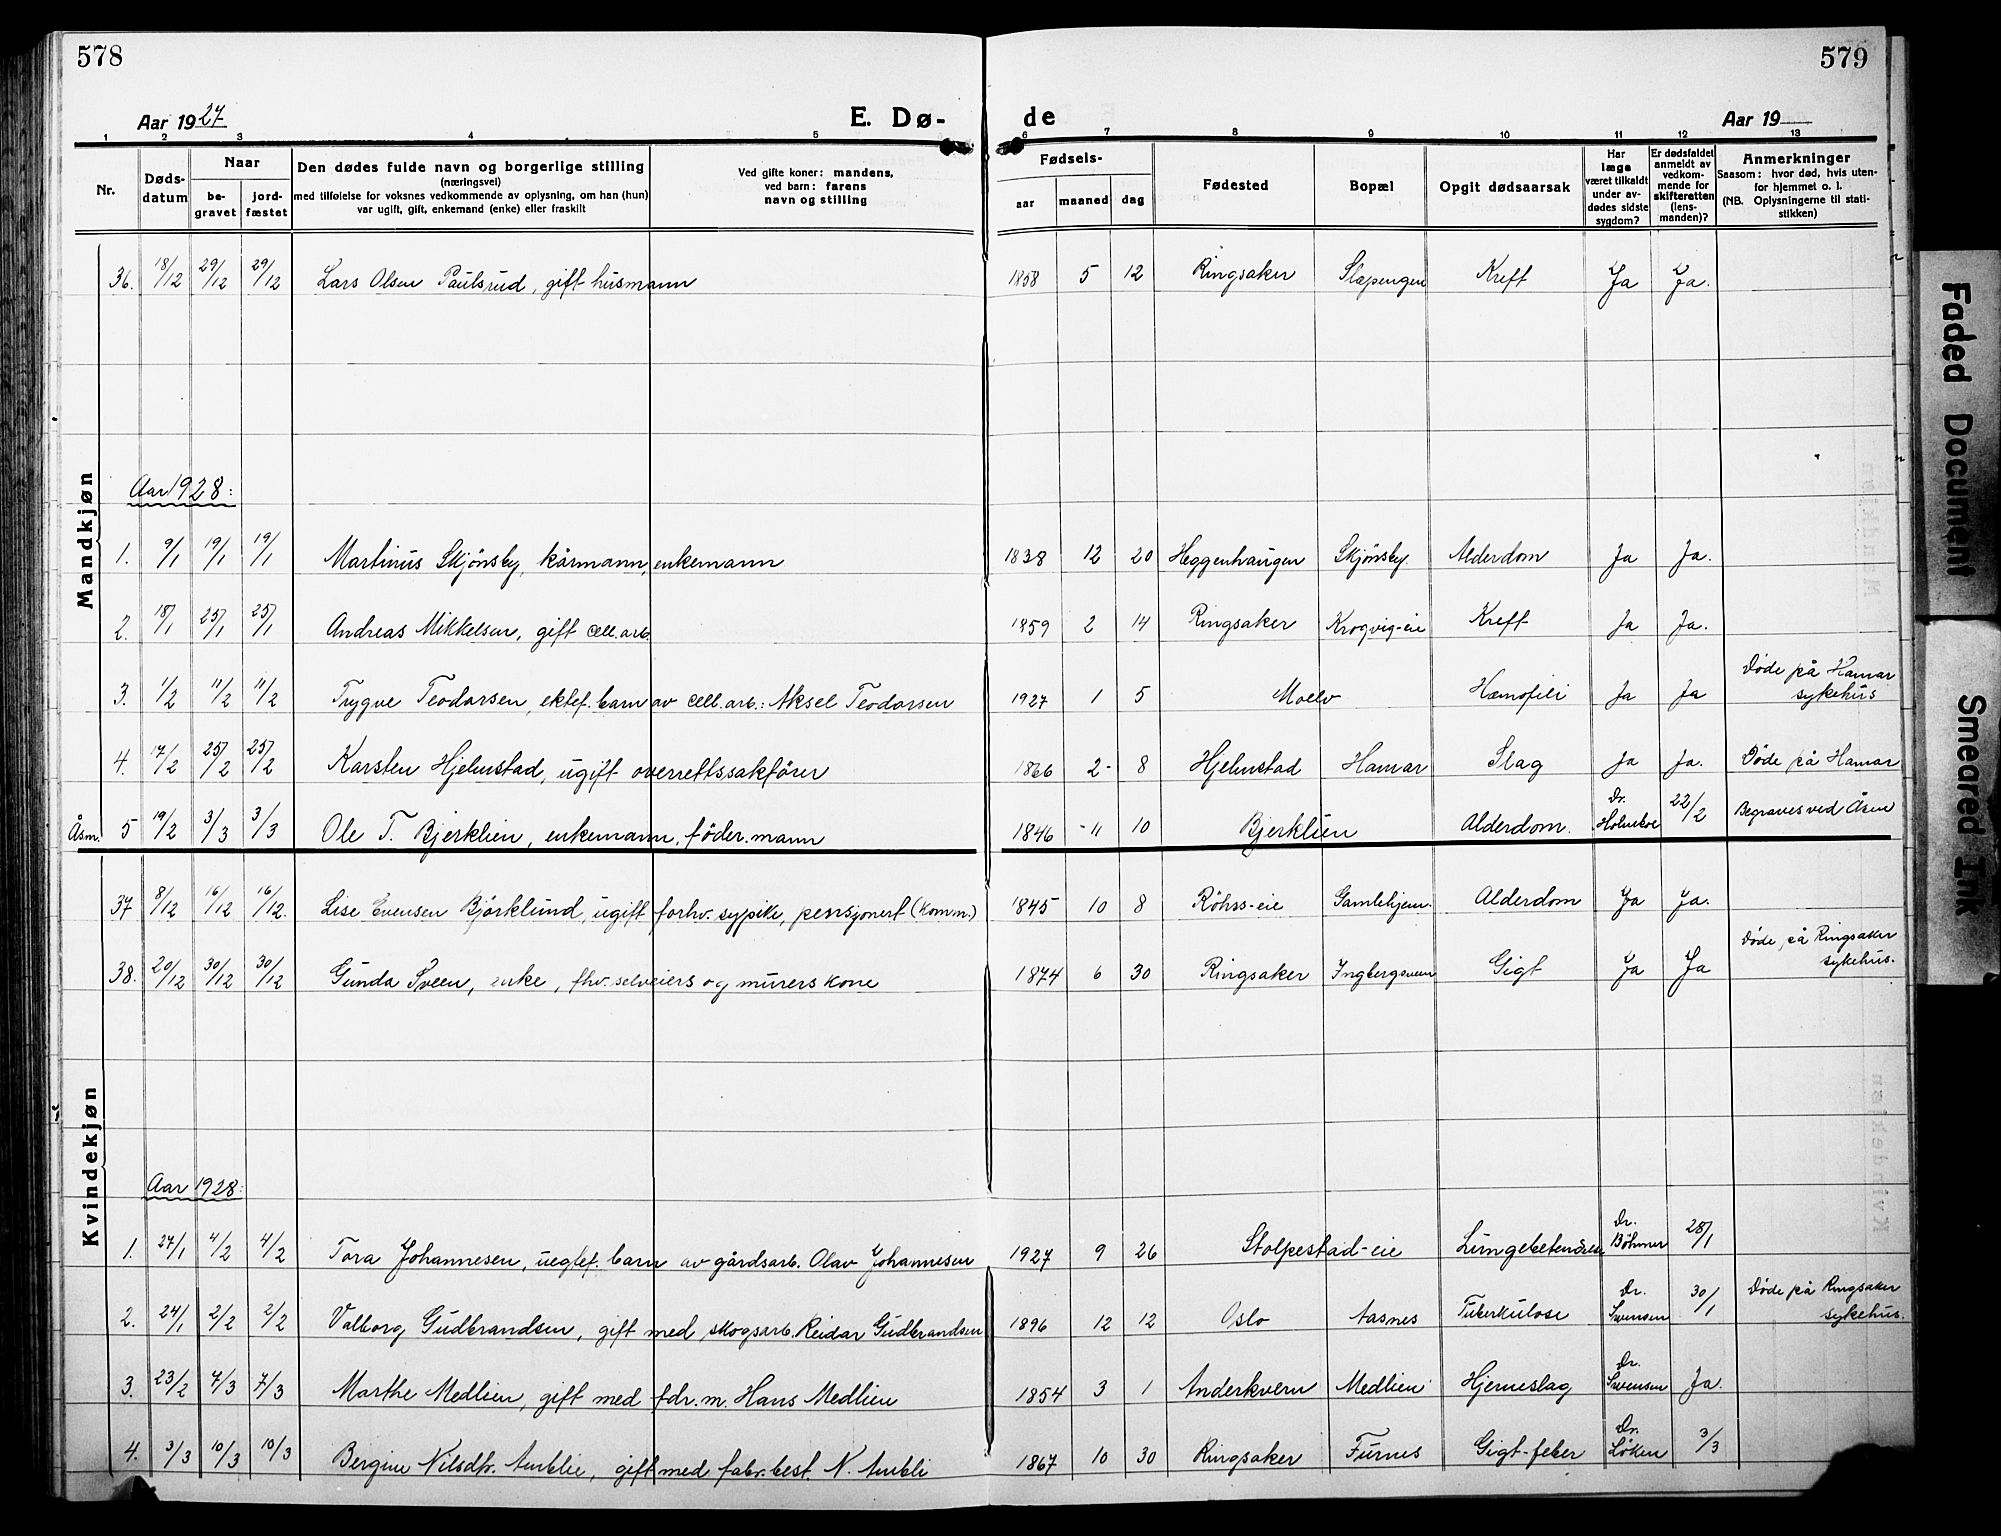 578
579
Aar 1927
E. Dø-
de
Aar 19
1 2 3 4 5 6 7 8 9 10 11 12 13
Nr.
Døds-
datum
Naar
be-
gravet
jord-
fæstet
Den dødes fulde navn og borgerlige stilling
(næringsvei)
med tilføielse for voksnes vedkommende av oplysning, om han (hun)
var ugift, gift, enkemand (enke) eller fraskilt
Ved gifte koner: mandens,
ved barn: farens
navn og stilling
Fødsels-
aar maaned dag
Fødested
Bopæl
Opgit dødsaarsak
Har
læge
været tilkaldt
under av-
dødes sidste
sygdom?
Er dødsfaldet
anmeldt av
vedkom-
mende for
skifteretten
(lens-
manden)?
Anmerkninger
Saasom: hvor død, hvis uten-
for hjemmet o. l.
(NB. Oplysningerne til stati-
stikken)
Mandkjøn
36. 18/12 29/12 29/12 Lars Olsen Paulsrud, gift husmann 1858 5 12 Ringsaker Slapengen Kreft Ja Ja.
Aar 1928:
1. 9/1 19/1 19/1 Martinus Skjønsby, kårmann, enkemann 1838 12 20 Heggenhaugen Skjønsby. Alderdom Ja Ja.
2. 18/1 25/1 25/1 Andreas Mikkelsen, gift cell.arb. 1859 2 14 Ringsaker Krogvig-eie Kreft Ja Ja.
3. 1/2 11/2 11/2 Trygve Teodorsen, ektef. barn av cell. arb.: Aksel Teodorsen 1927 1 5 Moelv Hæmofili Ja Ja Døde på Hamar
sykehus
4. 17/2 25/2 25/2 Karsten Hjelmstad, ugift overrettssakfører 1866 2 8 Hjelmstad Hamar Slag Ja Ja. Døde på Hamar
Åsm. 5 19/2 3/3 3/3 Ole T. Bjerklien, enkemann, føder.mann 1846 11 10 Bjerklien Alderdom. Dr. Holmboe 22/2 Begraves ved Åsm
Kvindekjøn
37 8/12 16/12 16/12. Lise Evensen Bjørklund, ugift forhv. sypike, pensjonert (komm.) 1845 10 8 Röhss-eie Gamlehjem. Alderdom Ja Ja.
38. 20/12 30/12 30/12 Gunda Sveen, enke, fhv. selveiers og murers kone 1874 6 30 Ringsaker Ingbergsveen Gigt Ja Ja Døde på Ringsaker
sykehus.
Aar 1928:
1. 27/1 4/2 4/2 Tora Johannesen, uegtef. barn av gårdsarb. Olav Johannesen 1927 9 26 Stolpestad-eie Lungebetendelse Dr. Böhmer 28/1
2. 24/1 2/2 2/2 Valborg Gudbrandsen, gift med skogsarb. Reidar Gudbrandsen 1896 12 12 Oslo Aasnes Tuberkulose Dr. Svensen 30/1 Døde på Ringsaker
sykehus.
3. 23/2 7/3 7/3 Marthe Medlien, gift med fdr. m. Hans Medlien 1854 3 1 Anderkvern Medlien Hjerneslag Dr. Svensen Ja.
4. 3/3 10/3 10/3 Bergine Nilsdtr. Amblie, gift med fabr. best. N. Ambli 1867 10 30 Ringsaker Furnes Gigt-feber Dr. Løken 3/3
Faded Document
Smeared Ink